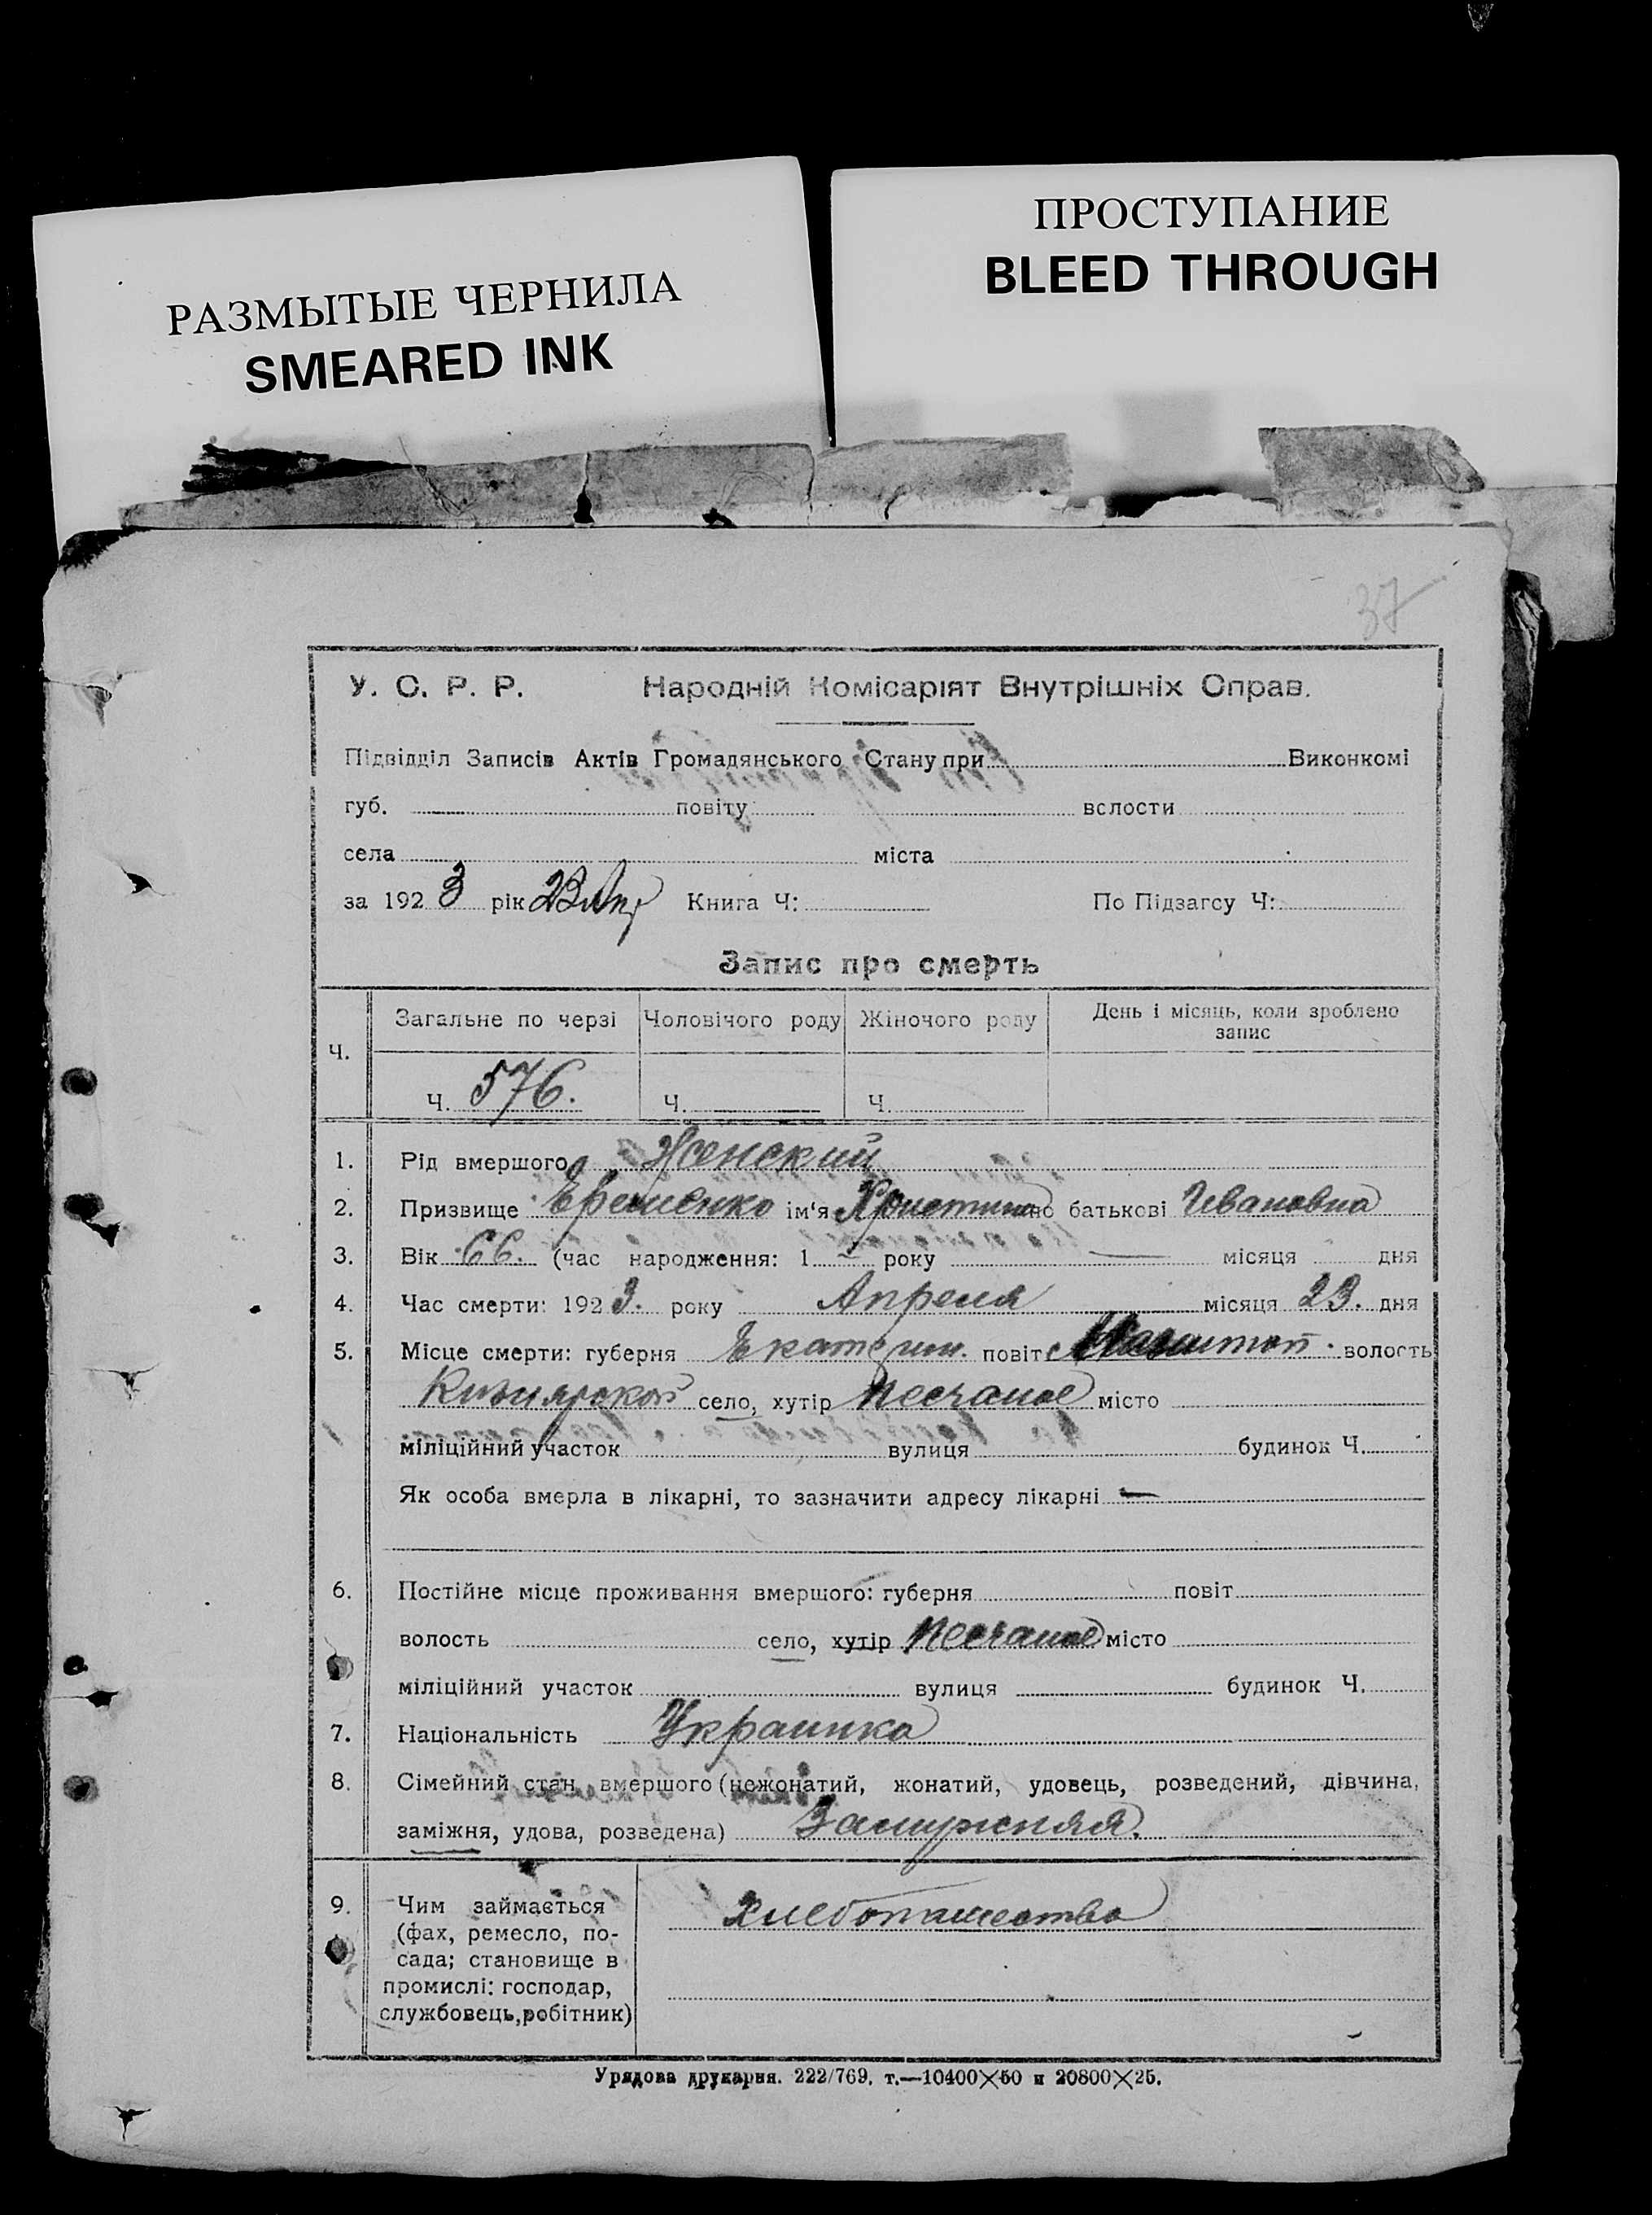 РАЗМЫТЫЕ ЧЕРНИЛА
SMEARED INK
ПРОСТУПАНИЕ
BLEED THROUGH
37
У. С. Р. Р. Народній Комісаріят Внутрішніх Справ.
Підвідділ Записів Актів Громадянського Стану при Виконкомі
губ. повіту вслости
села міста
за 1923 рік 23 Апр Книга Ч: По Підзагсу Ч:
Запис про смерть
Ч. Загальне по черзі Чоловічого роду Жіночого роду День і місяць, коли зроблено запис
Ч. 576. Ч. Ч.
1. Рід вмершого Женский
2. Призвище Ефименко ім'я Христина по батькові Ивановна
3. Вік 66. (час народження: 1 року — місяця дня
4. Час смерти: 1923. року Апреля місяця 23. дня
5. Місце смерти: губерня Екатерин. повіт волость
Кизиярской село, хутір Песчаное місто
міліційний участок вулиця будинок Ч.
Як особа вмерла в лікарні, то зазначити адресу лікарні —
6. Постійне місце проживання вмершого: губерня повіт
волость село, хутір Песчаное місто
міліційний участок вулиця будинок Ч.
7. Національність Украинка
8. Сімейний стан вмершого (нежонатий, жонатий, удовець, розведений, дівчина,
заміжня, удова, розведена) Замужняя.
9. Чим займається Хлебопашество
(фах, ремесло, по-
сада; становище в
промислі: господар,
службовець, робітник)
Урядова друкарня. 222/769. т.—10400×50 и 20800×25.